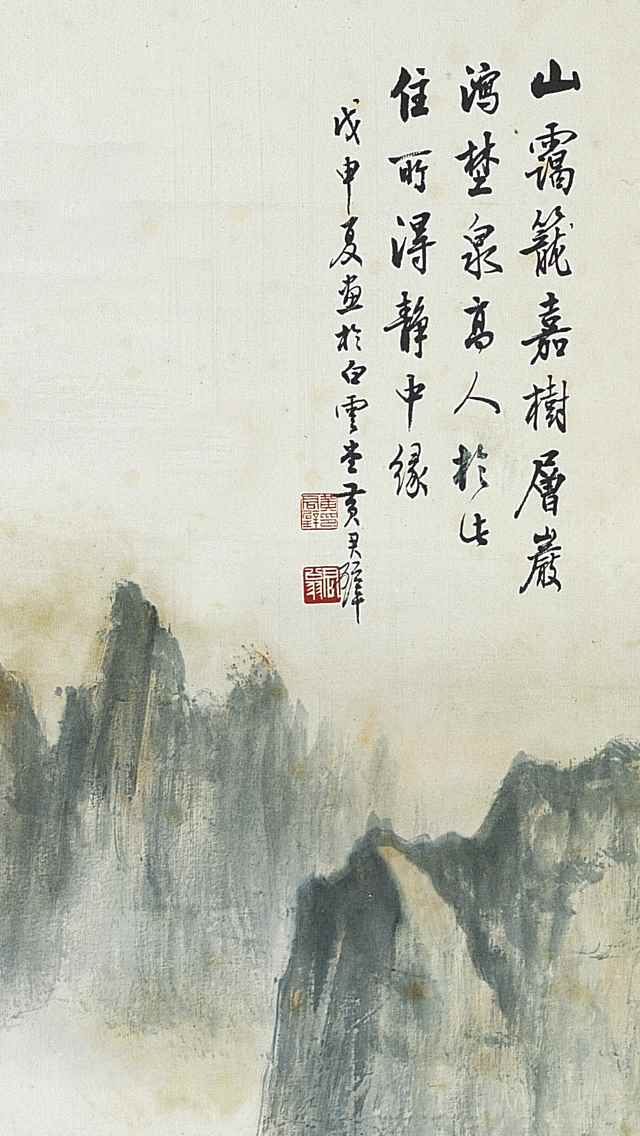 山靄籠嘉樹層巖
瀉埜泉高人於此
住所得靜中緣
戊申夏畫於白雲堂黃君璧
黃君璧印
君翁